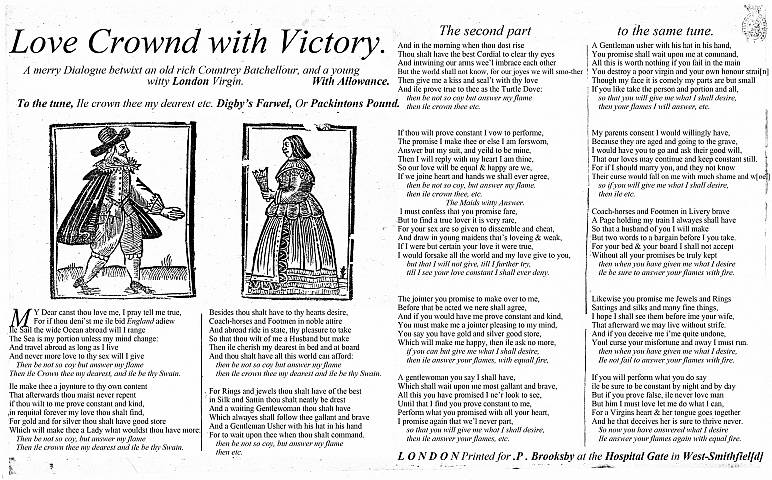 Love Crownd with Victory.
A merry Dialogue betwixt an old rich Countrey Batchellour, and a young
witty London Virgin. With Allowance.
To the tune, Ile crown thee my dearest etc. Digby's Farwel, Or Packintons Pound.
MY Dear canst thou love me, I pray tell me true,
For if thou deni'st me ile bid England adiew
Ile Sail the wide Ocean abroad will I range
The Sea is my portion unless my mind change:
And travel abroad as long as I live
And never more love to thy sex will I give
Then be not so coy but answer my flame
Then Ile Crown thee my dearest, and ile be thy Swain.
Ile make thee a joynture to thy own content
That afterwards thou maist never repent
if thou wilt to me prove constant and kind,
in requital forever my love thou shalt find,
For gold and for silver thou shalt have good store
Which will make thee a Lady what wouldst thou have more:
Then be not so coy, but answer my flame
Then Ile crown thee my dearest and ile be thy Swain.
Besides thou shalt have to thy hearts desire,
Coach-horses and Footmen in noble attire
And abroad ride in state, thy pleasure to take
So that thou wilt of me a Husband but make
Then ile cherish my dearest in bed and at board
And thou shalt have all this world can afford:
then be not so coy but answer my flame
then ile crown thee my dearest and ile be thy Swain.
For Rings and jewels thou shalt have of the best
in Silk and Sattin thou shalt neatly be drest
And a waiting Gentlewoman thou shalt have
Which always shall follow thee gallant and brave
And a Gentleman Usher with his hat in his hand
For to wait upon thee when thou shalt command.
then be not so coy, but answer my flame
then etc.
The second part
And in the morning when thou dost rise
Thou shalt have the best Cordial to clear thy eyes
And intwining our arms wee'l imbrace each other
But the world shall not know, for our joyes we will smo-ther
Then give me a kiss and seal't with thy love
And ile prove true to thee as the Turtle Dove:
then be not so coy but answer my flame
then ile crown thee etc.
If thou wilt prove constant I vow to performe,
The promise I make thee or else I am forsworn,
Answer but my suit, and yeild to be mine,
Then I will reply with my heart I am thine,
So our love will be equal & happy are we,
If we joine heart and hands we shall ever agree,
then be not so coy, but answer my flame.
then ile crown thee, etc.
The Maids witty Answer.
I must confess that you promise fare,
But to find a true lover it is very rare,
For your sex are so given to dissemble and cheat,
And draw in young maidens that's loveing & weak,
If I were but certain your love it were true,
I would forsake all the world and my love give to you,
but that I will not give, till I further try,
till I see your love constant I shall ever deny.
The joynter you promise to make over to me,
Before that be acted we nere shall agree,
And if you would have me prove constant and kind,
You must make me a jointer pleasing to my mind,
You say you have gold and silver good store,
Which will make me happy, then ile ask no more,
if you can but give me what I shall desire,
then ile answer your flames, with equall fire,
A gentlewoman you say I shall have,
Which shall wait upon me most gallant and brave,
All this you have promised I ne'r look to see,
Until that I find you prove constant to me,
Perform what you promised with all your heart,
I promise again that we'l never part,
so that you will give me what I shall desire,
then ile answer your flames, etc.
to the same tune.
A Gentleman usher with his hat in his hand,
You promise shall wait upon me at comand,
All this is worth nothing if you fail in the main
You destroy a poor virgin and your own honour strai[n]
Though my face it is comely my parts are but small
If you like take the person and portion and all,
so that you will give me what I shall desire,
then your flames I will answer, etc.
My parents consent I would willingly have,
Because they are aged and going to the grave,
I would have you to go and ask their good will,
That our loves may continue and keep constant still.
For if I should marry you, and they not know
Their curse would fall on me with much shame and w[oe]
so if you will give me what I shall desire,
then ile etc.
Coach-horses and Footmen in Livery brave
A Page holding my train I always shall have
So that a husband of you I will make
But two words to a bargain before you take.
For your bed & your board I shall not accept
Without all your promises be truly kept
then when you have given me what I desire
ile be sure to answer your flames with fire.
Likewise you promise me Jewels and Rings
Sattings and silks and many fine things,
I hope I shall see them before ime your wife,
That afterward we may live without strife.
And if you deceive me i'me quite undone,
Youl curse your misfortune and away I must run.
then when you have given me what I desire,
Ile not fail to answer your flames with fire.
If you will perform what you do say
ile be sure to be constant by night and by day
But if you prove false, ile never love man
But him I must love let me do what I can,
For a Virgins heart & her tongue goes together
And he that deceives her is sure to thrive never.
So now you have answered what I desire
Ile answer your flames again with equal fire.
LONDON Printed for .P. Brooksby at the Hospital Gate in West-Smithfiel[d]